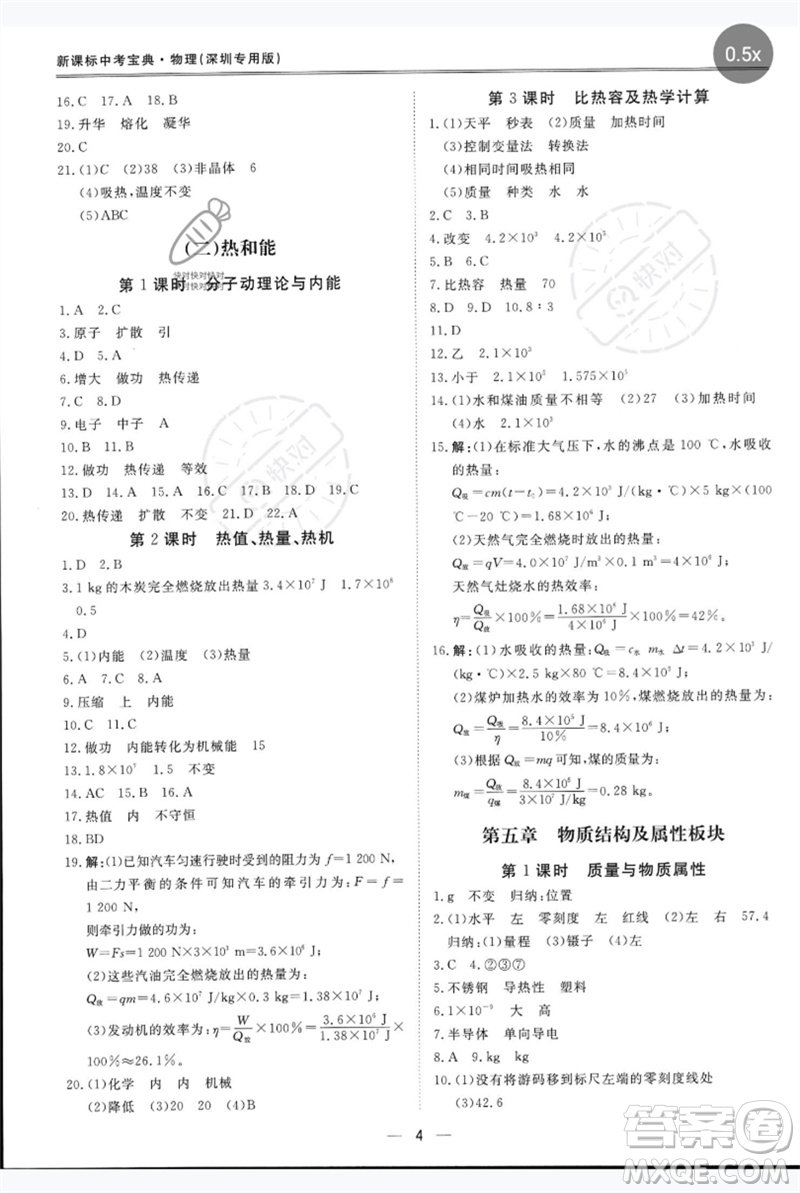 新课标中考宝典·物理(深圳专用版)
0.5x
16.C 17.A 18.C
19.升华 熔化 凝华
20.C
21.(1)C (2)38 (3)非晶体 6
(4)吸热,温度不变
(5)ABC
(二)热和能
第1课时 分子动理论与内能
1.A 2.C
3.原子 扩散 引
4.D 5.A
6.增大 做功 热传递
7.C 8.D
9.电子 中子 A
10.B 11.B
12.做功 热传递 等效
13.D 14.A 15.A 16.A 17.A
20.热传递 扩散 不变 21.D 22.A
第2课时 热值、热量、热机
1.D 2.B
3.1 kg的木炭完全燃烧放出热量3.4×10⁷ J 1.7×10⁶
0.5
4.D
5.(1)内能 (2)温度 (3)热量
6.A 7.C 8.A
9.压缩 上 内能
10.C 11.C
12.做功 内能转化为机械能 15
13.1.8×10⁷ 1.5 不变
14.AC 15.B 16.A
17.热值 内 不守恒
18.BD
19.解:(1)已知汽车匀速行驶时受到的阻力为f=1 200 N,
由二力平衡的条件可知汽车的牵引力为F=f=
1 200 N,
则牵引力做的功为:
W=Fs=1 200 N×3×10³ m=3.6×10⁶ J;
(2)这些汽油完全燃烧放出的热量为:
Q放=qm=4.6×10⁷ J/kg×0.3 kg=1.38×10⁷ J;
(3)发动机的效率为:η=W/Q放×100%=3.6×10⁶ J/1.38×10⁷ J×
100%≈26.1%。
20.(1)化学 内 内 机械
(2)降低 (3)20 20 (4)B
第3课时 比热容及热学计算
1.(1)天平 秒表 (2)质量 加热时间
(3)控制变量法 转换法
(4)相同时间吸热相同
(5)质量 种类 水 水
2.C 3.B
4.改变 4.2×10³ 4.2×10⁵
5.B 6.C
7.比热容 热量 70
8.D 9.D 10.8∶3
11.D
12.乙 2.1×10³
13.小于 2.1×10³ 1.575×10⁵
14.(1)水和煤油质量不相等 (2)27 (3)加热时间
(4)水 2.1×10³
15.解:(1)在标准大气压下,水的沸点是100 ℃,水吸收
的热量:
Q吸=cm(t-t₀)=4.2×10³ J/(kg·℃)×5 kg×(100
℃-20 ℃)=1.68×10⁶ J;
(2)天然气完全燃烧时放出的热量:
Q放=qV=4.0×10⁷ J/m³×0.1 m³=4×10⁶ J,
天然气灶烧水的热效率:
η=Q吸/Q放×100%=1.68×10⁶ J/4×10⁶ J×100%=42%。
16.解:(1)水吸收的热量:Q吸=c水 m水 Δt=4.2×10³J/
(kg·℃)×2.5 kg×80 ℃=8.4×10⁵J;
(2)煤炉加热水的效率为10%,煤燃烧放出的热量:
Q放=Q吸/η=8.4×10⁵ J/10%=8.4×10⁶ J;
(3)根据Q放=mq可知,煤的质量:
m煤=Q放/q煤=8.4×10⁶ J/3×10⁷ J/kg=0.28 kg。
第五章 物质结构及属性板块
第1课时 质量与物质属性
1.g 不变 归纳:位置
2.(1)水平 左 零刻度 右 (2)左 右 57.4
归纳:(1)量程 (3)镊子 (4)左
3.C 4.②③⑦
5.不锈钢 导热性 塑料
6.1×10⁻⁹ 大 高
7.半导体 单向导电
8.A 9.kg kg
10.(1)没有将游码移到标尺左端的零刻度线处
(3)42.6
4
快对
快对
答案圈
MXQE.COM